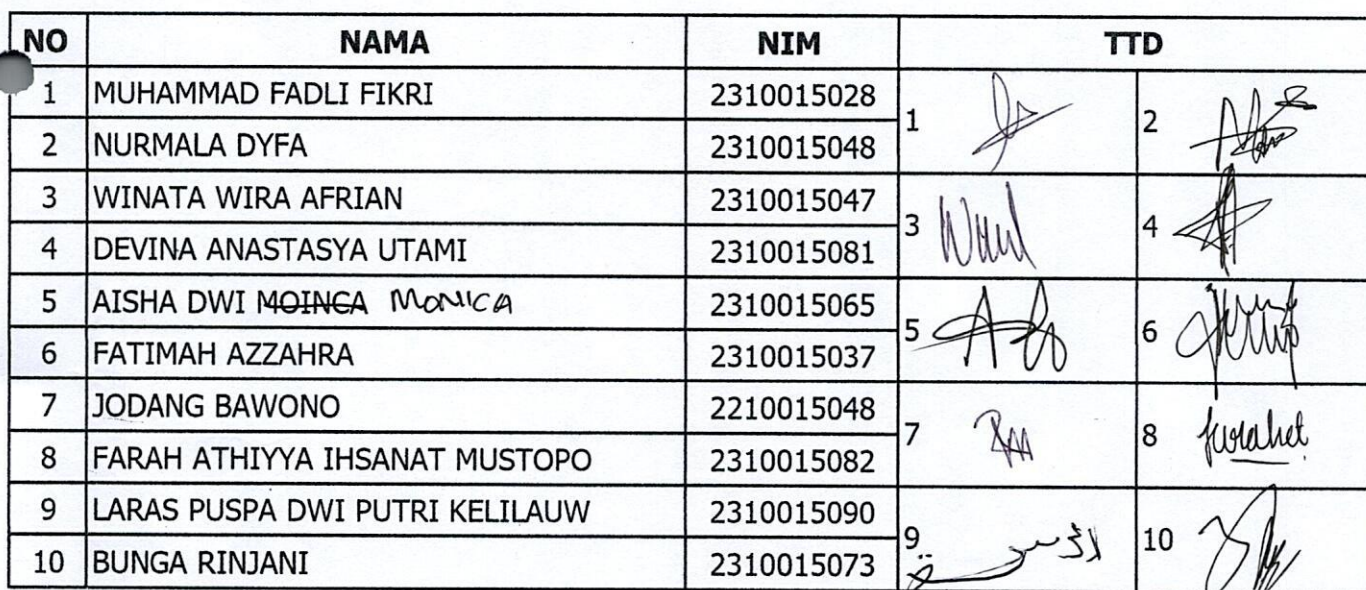 NO NAMA NIM TTD
1 MUHAMMAD FADLI FIKRI 2310015028
1 2
2 NURMALA DYFA 2310015048
3 WINATA WIRA AFRIAN 2310015047
3 4
4 DEVINA ANASTASYA UTAMI 2310015081
5 AISHA DWI MOINCA MONICA 2310015065
5 6
6 FATIMAH AZZAHRA 2310015037
7 JODANG BAWONO 2210015048
7 8
8 FARAH ATHIYYA IHSANAT MUSTOPO 2310015082
9 LARAS PUSPA DWI PUTRI KELILAUW 2310015090
9 10
10 BUNGA RINJANI 2310015073